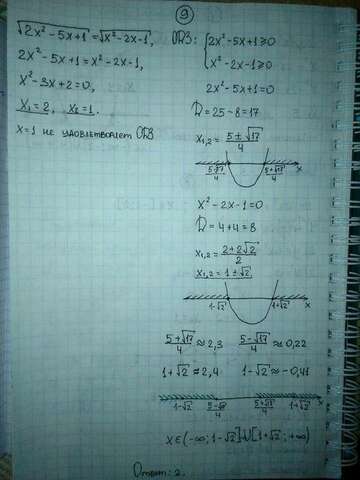 9
√2x² - 5x + 1 = √x² - 2x - 1,
2x² - 5x + 1 = x² - 2x - 1,
x² - 3x + 2 = 0,
x₁ = 2, x₂ = 1.
x = 1 не удовлетворяет ОДЗ
ОДЗ: { 2x² - 5x + 1 ≥ 0
x² - 2x - 1 ≥ 0
2x² - 5x + 1 = 0
D = 25 - 8 = 17
x₁,₂ = (5 ± √17)/4
(5-√17)/4 (5+√17)/4 x
x² - 2x - 1 = 0
D = 4 + 4 = 8
x₁,₂ = (2 ± 2√2)/2
x₁,₂ = 1 ± √2
1-√2 1+√2 x
(5+√17)/4 ≈ 2,3 (5-√17)/4 ≈ 0,22
1+√2 ≈ 2,4 1-√2 ≈ -0,41
1-√2 (5-√17)/4 (5+√17)/4 1+√2 x
x ∈ (-∞; 1-√2] ∪ [1+√2; +∞)
Ответ: 2.